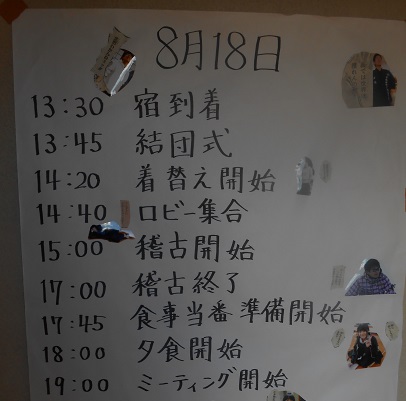 8月18日
13:30 宿到着
13:45 結団式
14:20 着替え開始
14:40 ロビー集合
15:00 稽古開始
17:00 稽古終了
17:45 食事当番準備開始
18:00 夕食開始
19:00 ミーティング開始